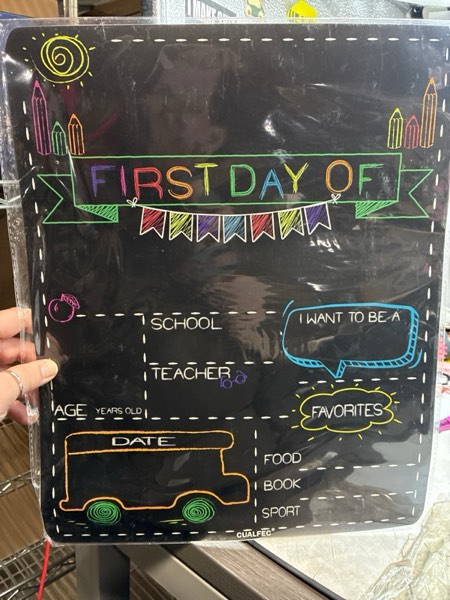 FIRST DAY OF
SCHOOL
I WANT TO BE A
TEACHER
AGE YEARS OLD
FAVORITES
DATE
FOOD
BOOK
SPORT
CUALFEC